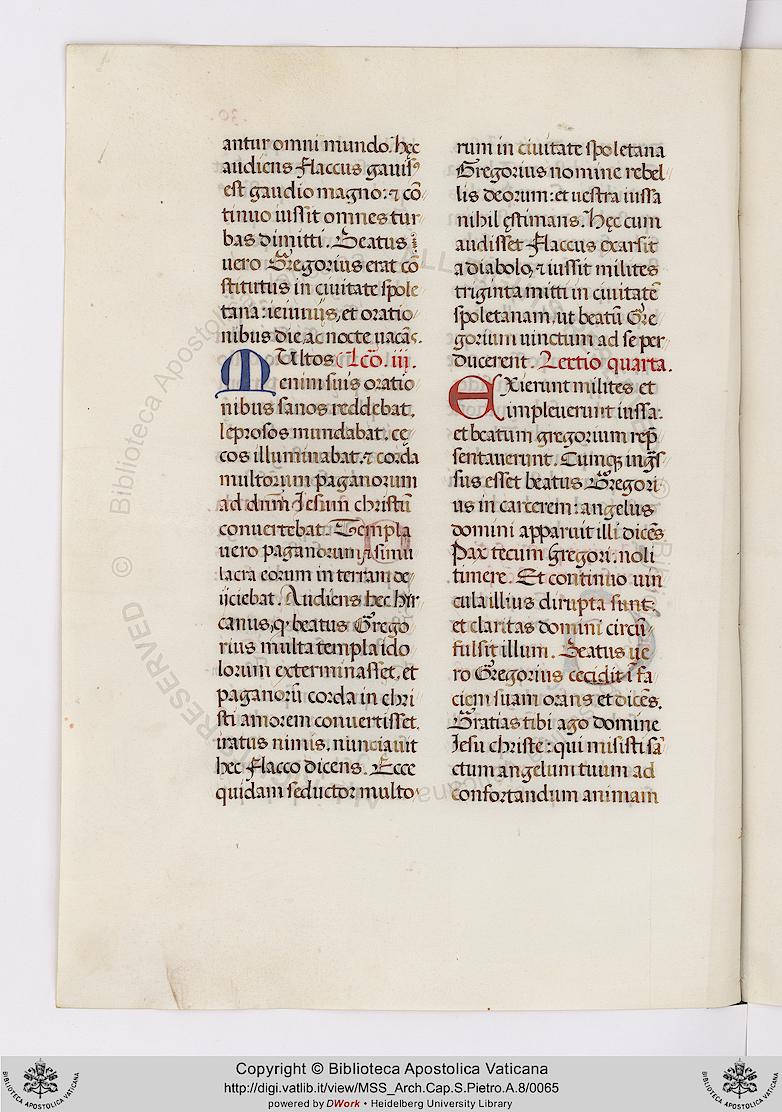 antur omni mundo. hęc
audiens Flaccus gauisꝰ
est gaudio magno: ⁊ cō
tinuo iussit omnes tur
bas dimitti. Beatus
uero Gregorius erat cō
stitutus in ciuitate spole
tana: ieiuniis, et oratio
nibus die ac nocte uacās.
MUltos Lcō. iii.
enim suis oratio
nibus sanos reddebat.
leprosos mundabat. cę
cos illuminabat. ⁊ corda
multorum paganorum
ad dn̄m Jesum christū
conuertebat. Templa
uero paganorum, ⁊ simu
lacra eorum in terram de
iiciebat. Audiens hec hir
canus, ꝙ beatus Grego
rius multa templa ido
lorum exterminasset. et
paganorū corda in chri
sti amorem conuertisset.
iratus nimis. nunciauit
hec Flacco dicens. Ecce
quidam seductor multo
rum in ciuitate spoletana
Gregorius nomine rebel
lis deorum: et uestra iussa
nihil ęstimans. Hęc cum
audisset Flaccus exarsit
a diabolo, ⁊ iussit milites
triginta mitti in ciuitatē
spoletanam. ut beatū Gre
gorium uinctum ad se per
ducerent. Lectio quarta.
EXierunt milites et
impleuerunt iussa.
et beatum gregorium rep̄
sentauerunt. Cumqꝫ ingr̄s
sus esset beatus Gregori
us in carcerem: angelus
domini apparuit illi dicēs
Pax tecum Gregori. noli
timere. Et continuo uin
cula illius dirupta sunt:
et claritas domini circū
fulsit illum. Beatus ue
ro Gregorius cecidit ī fa
ciem suam orans et dicēs.
Gratias tibi ago domine
Jesu christe: qui misisti sā
ctum angelum tuum ad
confortandum animam
Copyright © Biblioteca Apostolica Vaticana
http://digi.vatlib.it/view/MSS_Arch.Cap.S.Pietro.A.8/0065
powered by DWork • Heidelberg University Library